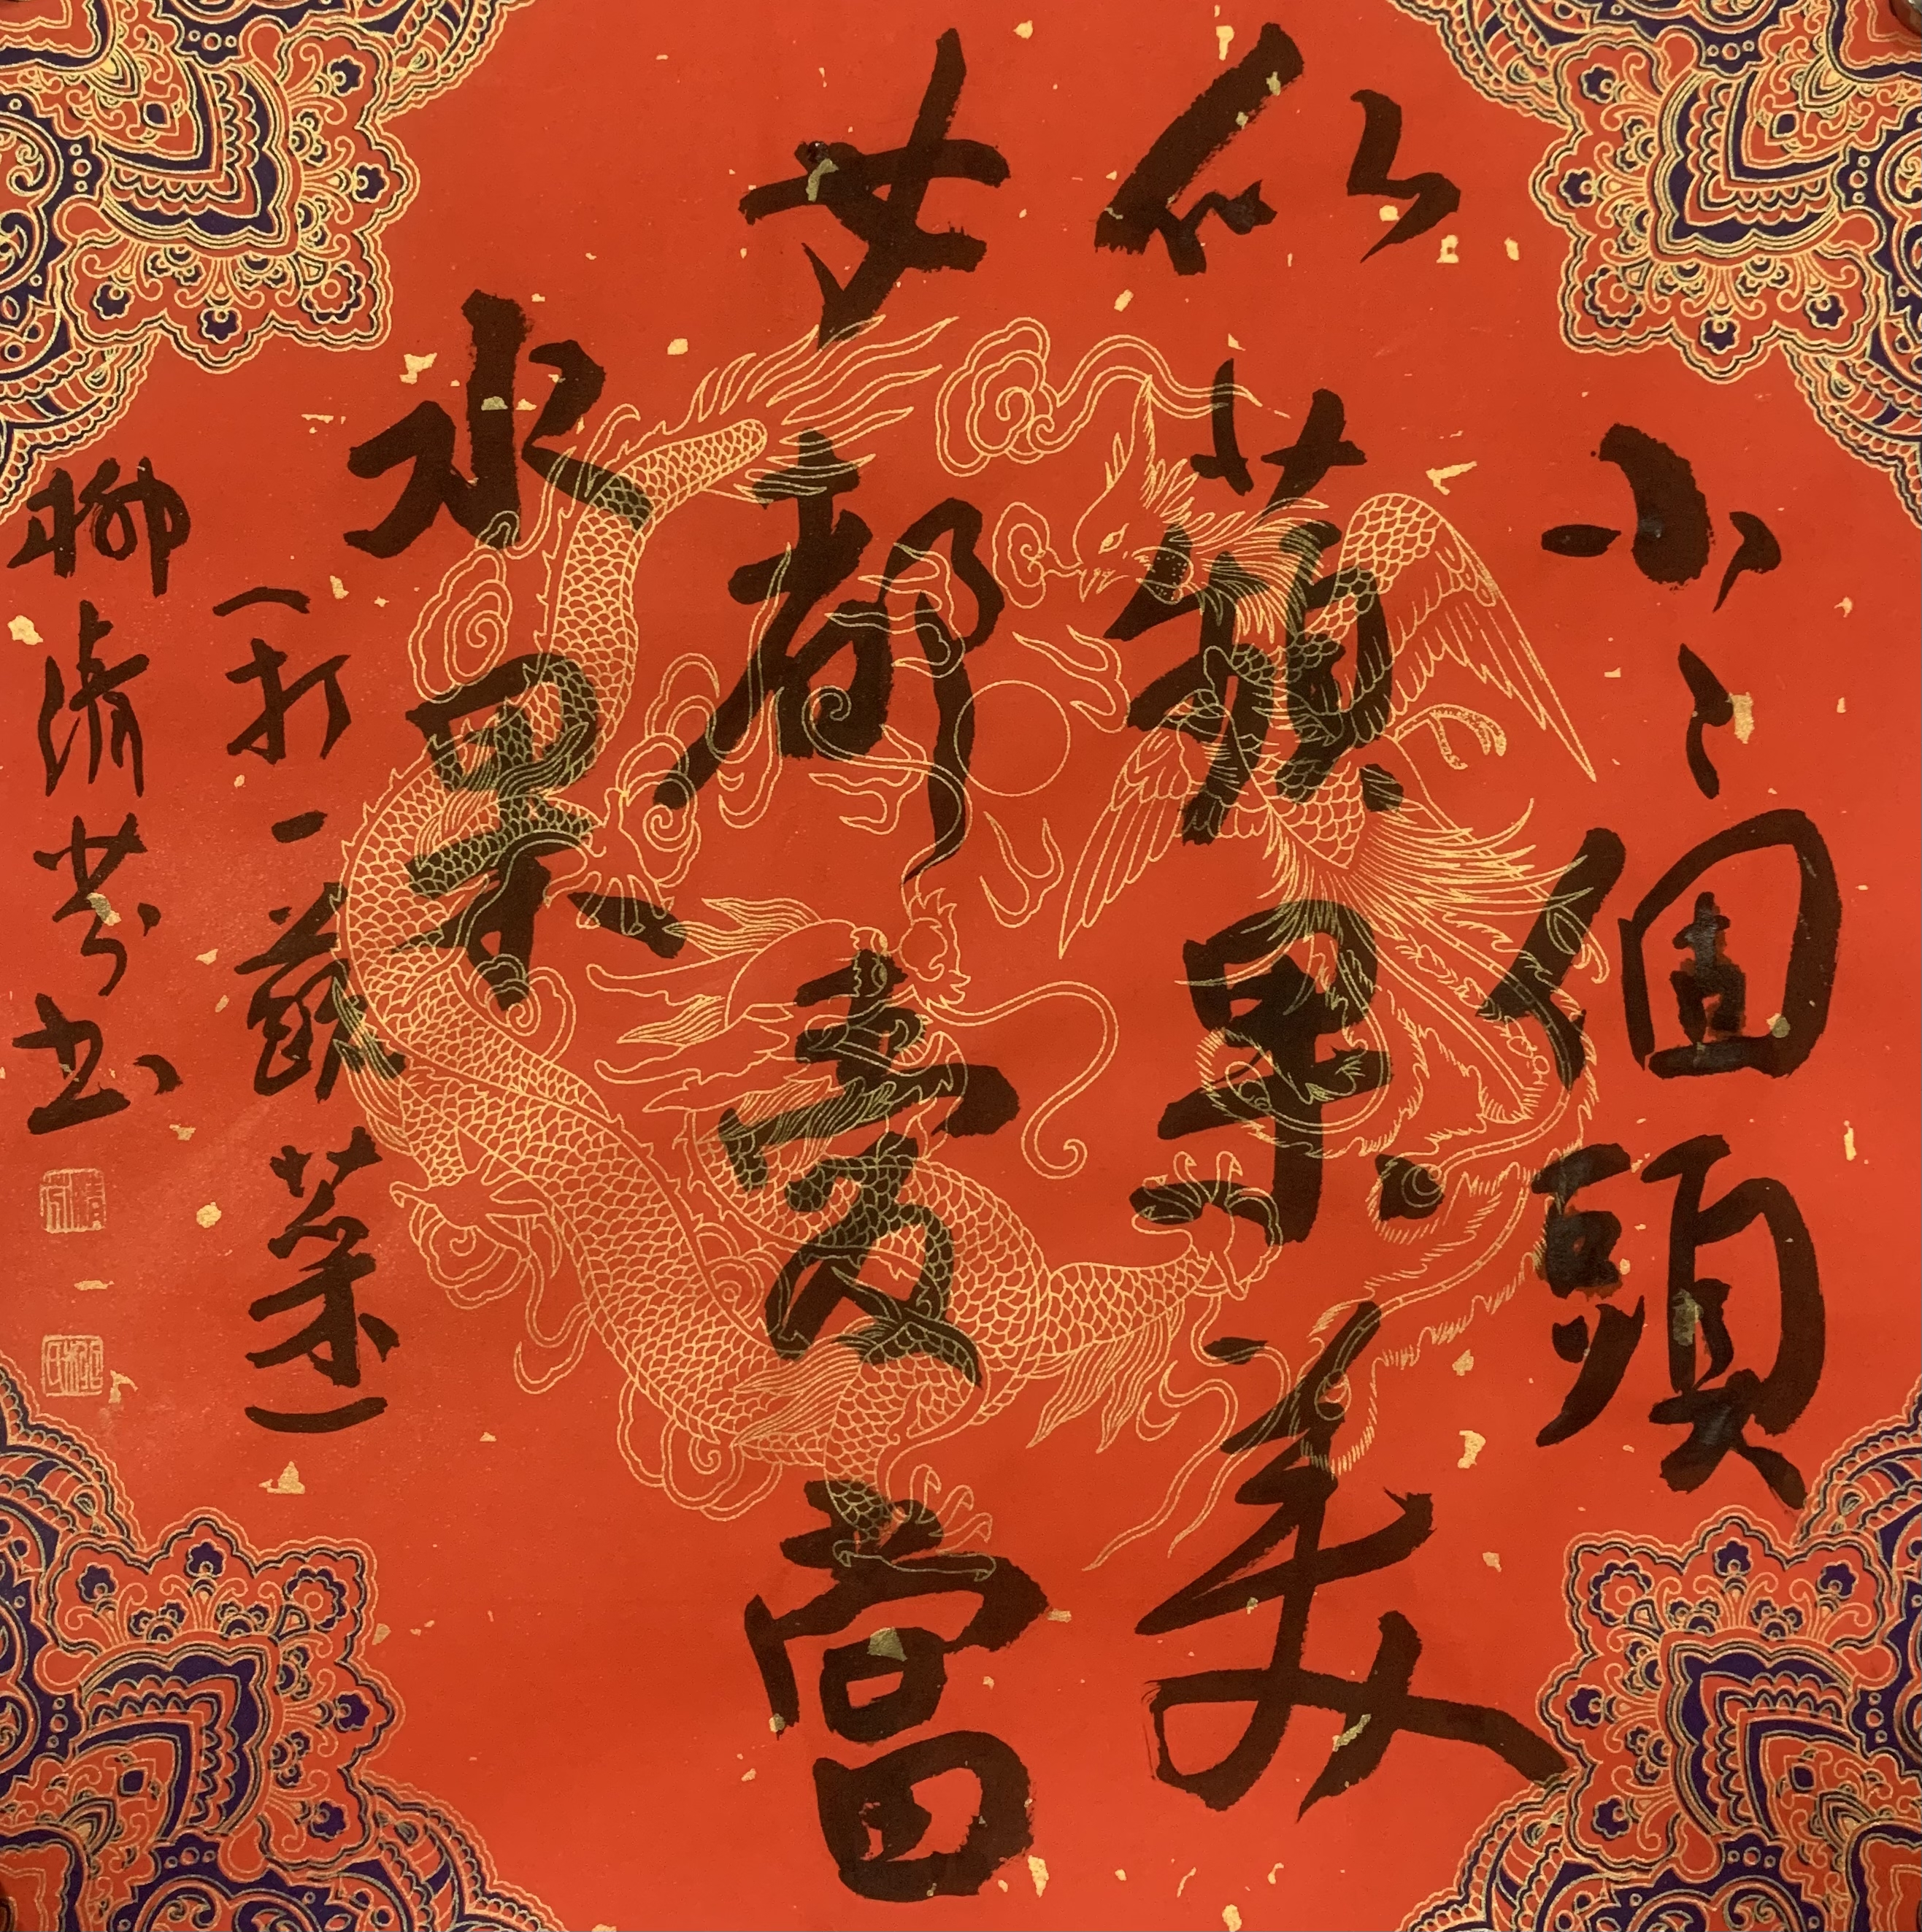 小〻個頭
似蘋果美
女都愛當
水果
(打一蔬菜)
柳清芬书